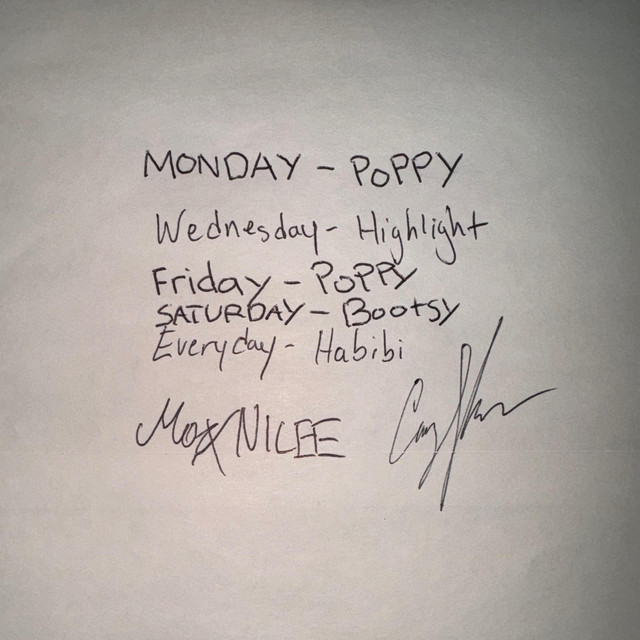 MONDAY - POPPY
Wednesday - Highlight
Friday - POPPY
SATURDAY - Bootsy
Everyday - Habibi
NILEE